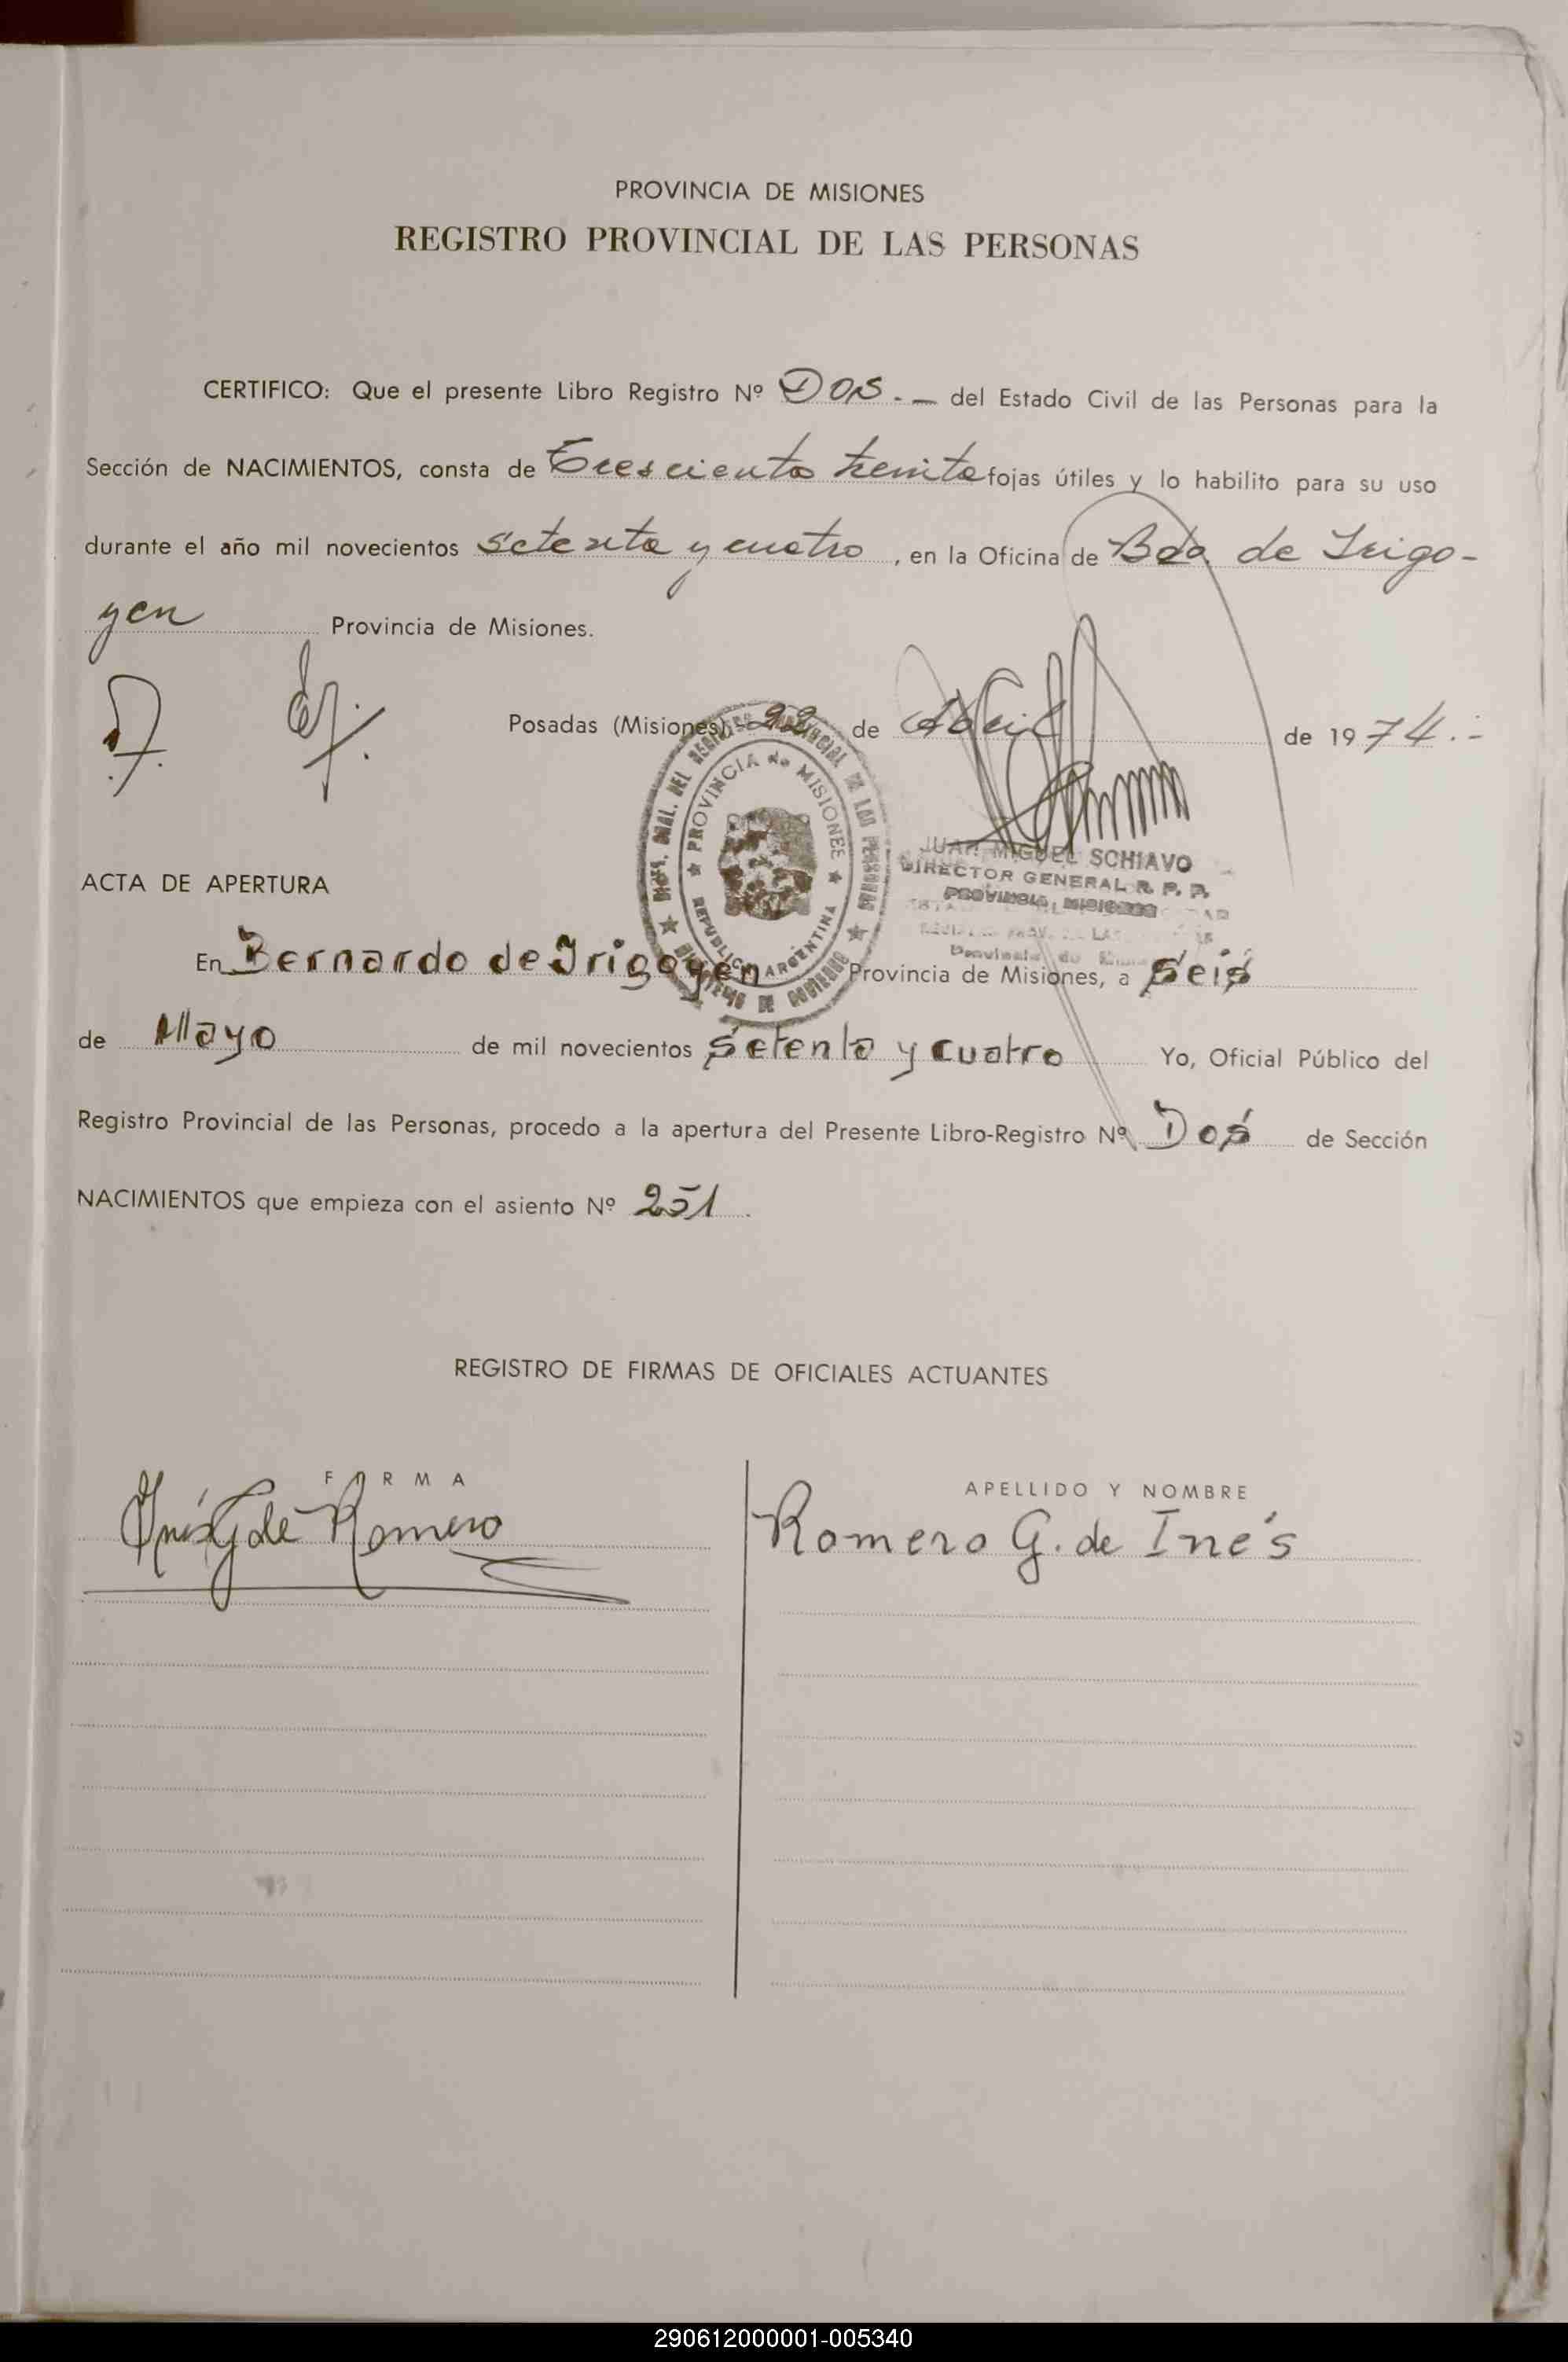 PROVINCIA DE MISIONES
REGISTRO PROVINCIAL DE LAS PERSONAS
CERTIFICO: Que el presente Libro Registro Nº Dos.- del Estado Civil de las Personas para la
Sección de NACIMIENTOS, consta de Tresciento treinta fojas útiles y lo habilito para su uso
durante el año mil novecientos setenta y cuatro, en la Oficina de Bdo. de Irigo-
yen Provincia de Misiones.
Posadas (Misiones), 22 de Abril de 1974.-
DIREC. GRAL. DEL REGISTRO PROVINCIAL DE LAS PERSONAS
PROVINCIA de MISIONES
REPUBLICA ARGENTINA
MINISTERIO DE GOBIERNO
JUAN MIGUEL SCHIAVO
DIRECTOR GENERAL R. P. P.
PROVINCIA MISIONES
ACTA DE APERTURA
En Bernardo de Irigoyen Provincia de Misiones, a Seis
de Mayo de mil novecientos Setenta y Cuatro Yo, Oficial Público del
Registro Provincial de las Personas, procedo a la apertura del Presente Libro-Registro Nº Dos de Sección
NACIMIENTOS que empieza con el asiento Nº 251.
REGISTRO DE FIRMAS DE OFICIALES ACTUANTES
FIRMA
APELLIDO Y NOMBRE
Inés G de Romero
Romero G. de Inés
290612000001-005340